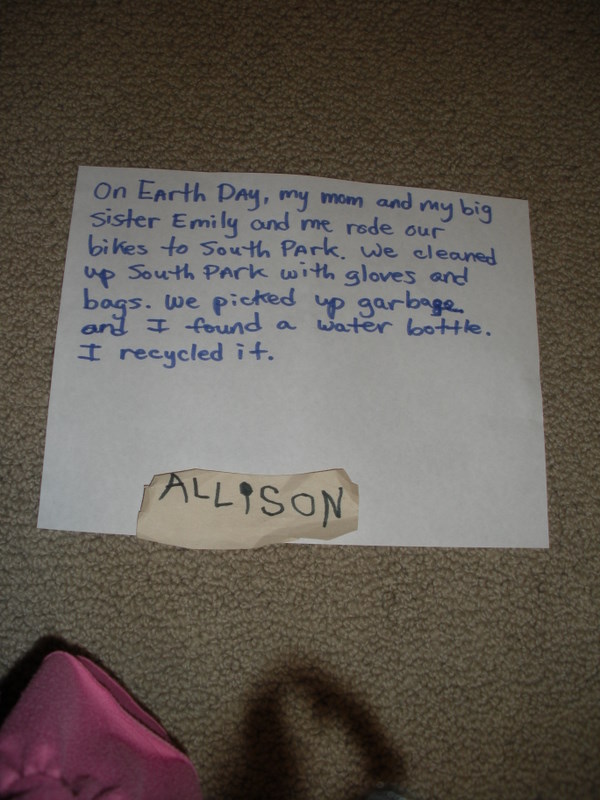 On Earth Day, my mom and my big
sister Emily and me rode our
bikes to South Park. We cleaned
up South Park with gloves and
bags. We picked up garbage
and I found a water bottle.
I recycled it.
ALLISON